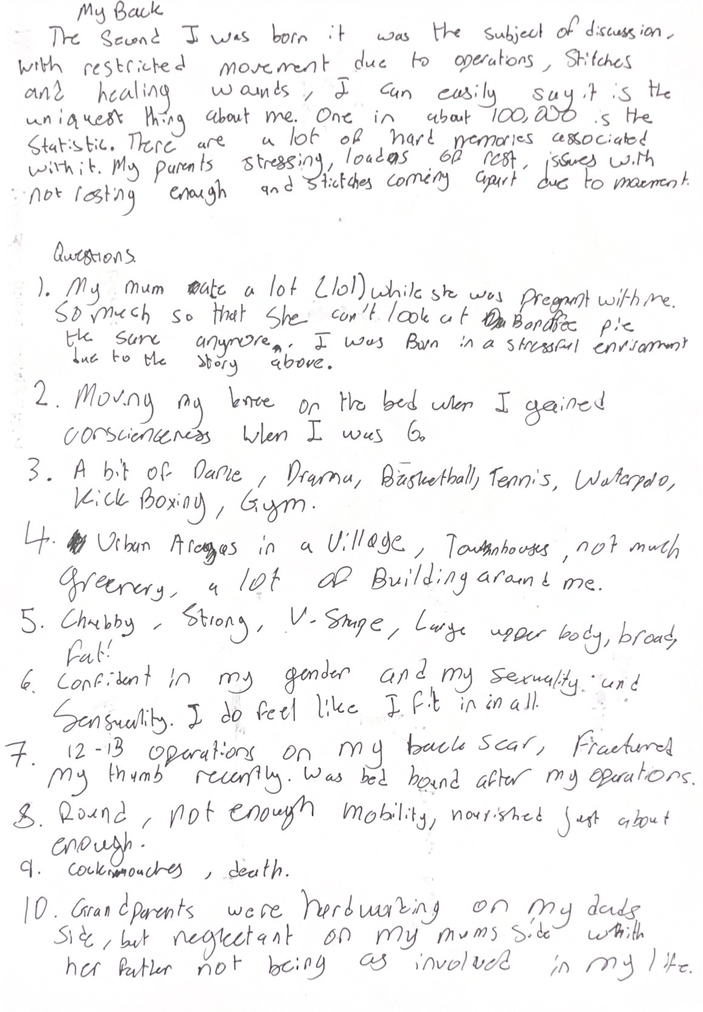 My Back
The Second I was born it was the subject of discussion,
with restricted movement due to operations, Stitches
and healing wounds, I can easily say it is the
uniquest thing about me. One in about 100,000 is the
Statistic. There are a lot of hard memories associated
with it. My parents stressing, loads of rest, issues with
not resting enough and stictches coming apart due to
Questions
1. My mum ate a lot (lol) while she was pregnant with me.
So much so that she can't look at pie
the same anymore. I was Born in a stressful
due to the story above.
2. Moving my knee on the bed when I gained
conscienceness when I was 6
3. A bit of Dance, Drama, Basketball, Tennis, Waterpolo,
Kick Boxing, Gym.
4. Urban Areas in a Village, Townhouses, not much
greenery, a lot of Building around me.
5. Chubby, Strong, V-Shape, Large upper body, broad,
Fat!
6. Confident in my gender and my sexuality and
Sensuality. I do feel like I fit in in all.
7. 12-13 operations on my back scar, Fractured
my thumb recently. Was bed bound after my operations.
8. Round, not enough mobility, nourished just about
enough.
9. , death.
10. Grandparents were hardworking on my dads
side, but neglectant on my mums side with
her father not being as involved in my life.